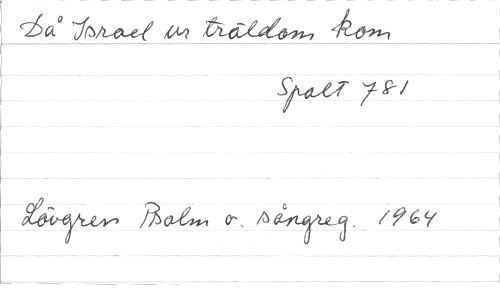 Då Israel ur träldom kom
Spalt 781
Lövgren Psalm o. sångreg. 1964